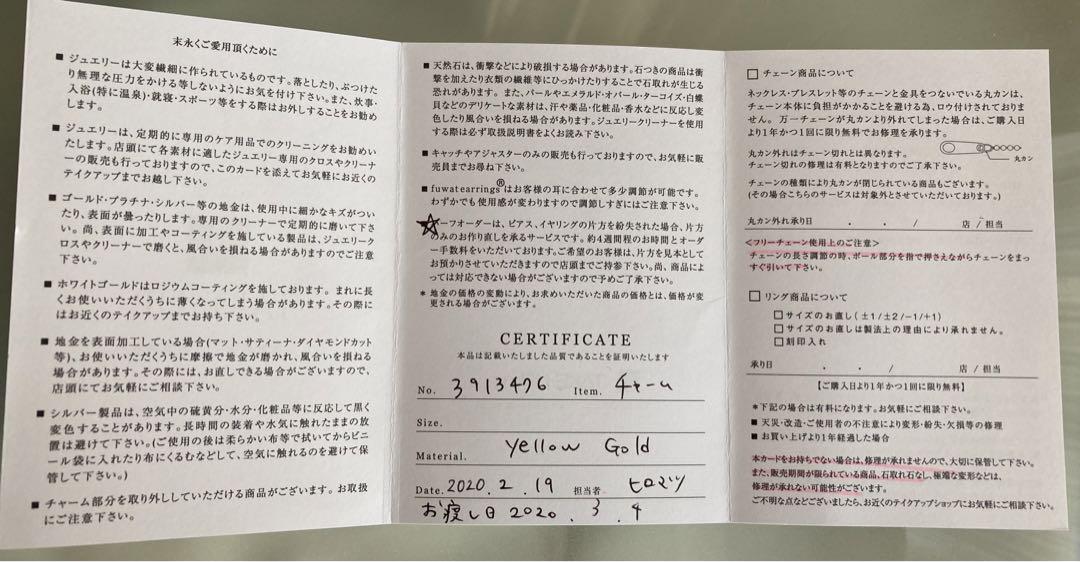 末永くご愛用頂くために
■ ジュエリーは大変繊細に作られているものです。落としたり、ぶつけた
り無理な圧力をかける等しないようにお気を付け下さい。また、炊事・
入浴(特に温泉)・就寝・スポーツ等をする際はお外しすることをお勧め
します。
■ ジュエリーは、定期的に専用のケア用品でのクリーニングをお勧めい
たします。店頭にて各素材に適したジュエリー専用のクロスやクリーナ
ーの販売も行っておりますので、このカードを添えてお気軽にお近くの
テイクアップまでお越し下さい。
■ ゴールド・プラチナ・シルバー等の地金は、使用中に細かなキズがつい
たり、表面が曇ったりします。専用のクリーナーで定期的に磨いて下さ
い。尚、表面に加工やコーティングを施している製品は、ジュエリーク
ロスやクリーナーで磨くと、風合いを損ねる場合がありますのでご注意
下さい。
■ ホワイトゴールドはロジウムコーティングを施しております。まれに長
くお使いいただくうちに薄くなってしまう場合があります。その際に
はお近くのテイクアップまでお持ち下さい。
■ 地金を表面加工している場合(マット・サティーナ・ダイヤモンドカット
等)、お使いいただくうちに摩擦で地金が磨かれ、風合いを損ねる
場合があります。その際には、お直しできる場合がございますので、
店頭にてお気軽にご相談下さい。
■ シルバー製品は、空気中の硫黄分・水分・化粧品等に反応して黒く
変色することがあります。長時間の装着や水気に触れたままの放
置は避けて下さい。(ご使用の後は柔らかい布等で拭いてからビニ
ール袋に入れたり布にくるむなどして、空気に触れるのを避けて保
管して下さい。)
■ チャーム部分を取り外ししていただける商品がございます。お取扱
にご注意下さい。
■ 天然石は、衝撃などにより破損する場合があります。石つきの商品は衝
撃を加えたり衣類の繊維等にひっかけたりすることで石取れが生じる
恐れがあります。また、パールやエメラルド・オパール・ターコイズ・白蝶
貝などのデリケートな素材は、汗や薬品・化粧品・香水などに反応し変
色したり風合いを損ねる場合があります。ジュエリークリーナーを使用
する際は必ず取扱説明書をよくお読み下さい。
■ キャッチやアジャスターのみの販売も行っておりますので、お気軽に販
売員までお尋ね下さい。
■ fuwatearrings®はお客様の耳に合わせて多少調節が可能です。
わずかでも使用感が変わりますので調節しすぎにはご注意下さい。
ーフオーダーは、ピアス、イヤリングの片方を紛失された場合、片方
のみのお作り直しを承るサービスです。約4週間程のお時間とオーダ
ー手数料をいただいております。ご希望のお客様は、片方を見本として
お預かりさせていただきますので店頭までご持参下さい。尚、商品によ
っては対応できない場合がございますので予めご了承下さい。
* 地金の価格の変動により、お求めいただいた商品の価格とは、価格が変
更される場合がございます。
CERTIFICATE
本品は記載いたしました品質であることを証明いたします
No. 3913476 Item. チャーム
Size.
Material. Yellow Gold
Date. 2020.2.19 担当者 ヒロマツ
お渡し日 2020.3.4
□ チェーン商品について
ネックレス・ブレスレット等のチェーンと金具をつないでいる丸カンは、
チェーン本体に負担がかかることを避ける為、ロウ付けされておりま
せん。万一チェーンが丸カンより外れてしまった場合は、ご購入日
より1年かつ1回に限り無料でお修理を承ります。
丸カン外れはチェーン切れとは異なります。
チェーン切れの修理は有料となりますのでご了承下さい。
丸カン
チェーンの種類により丸カンが閉じられている商品もございます。
(その場合こちらのサービスは対象外とさせていただいております。)
丸カン外れ承り日 ・ ・ 店/担当
<フリーチェーン使用上のご注意>
チェーンの長さ調節の時、ボール部分を指で押さえながらチェーンをまっ
すぐ引いて下さい。
□ リング商品について
□ サイズのお直し(±1/±2/-1/+1)
□ サイズのお直しは製法上の理由により承れません。
□ 刻印入れ
承り日 ・ ・ 店/担当
【ご購入日より1年かつ1回に限り無料】
*下記の場合は有料になります。お気軽にご相談下さい。
■ 天災・改造・ご使用者の不注意により変形・紛失・欠損等の修理
■ お買い上げより1年経過した場合
本カードをお持ちでない場合は、修理が承れませんので、大切に保管して下さい。
また、販売期間が限られている商品、石取れ石なし、極端な変形などは、
修理が承れない可能性がございます。
ご不明な点などございましたら、お近くのテイクアップショップにお気軽にご相談下さい。